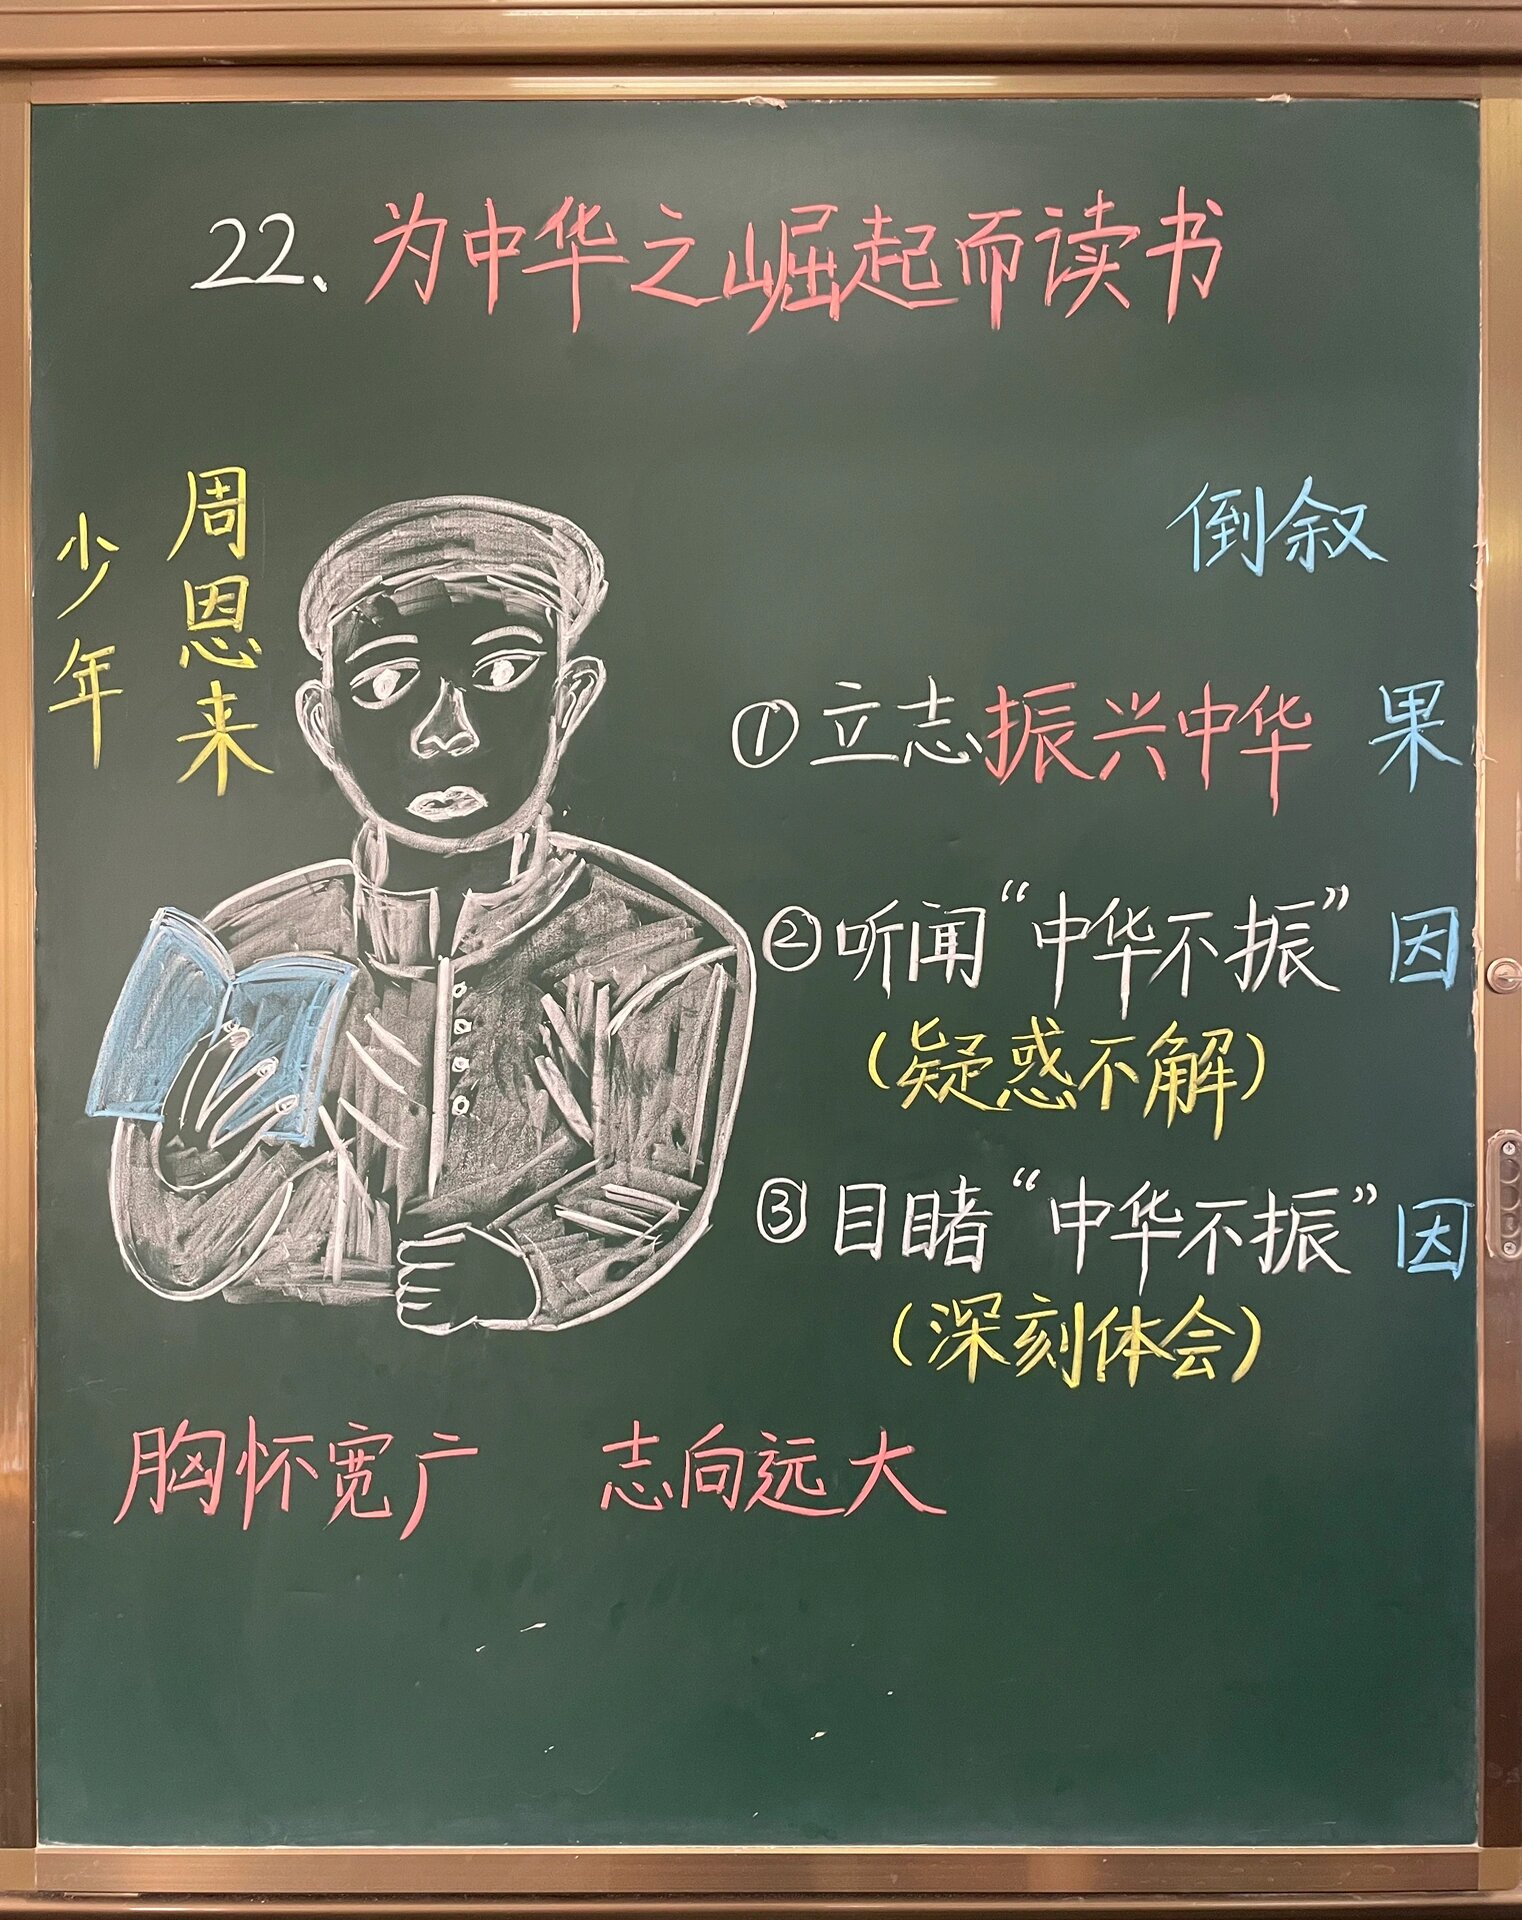 22、为中华之崛起而读书
少年
周恩来
倒叙
①立志振兴中华 果
②听闻“中华不振” 因
(疑惑不解)
③目睹“中华不振” 因
(深刻体会)
胸怀宽广 志向远大